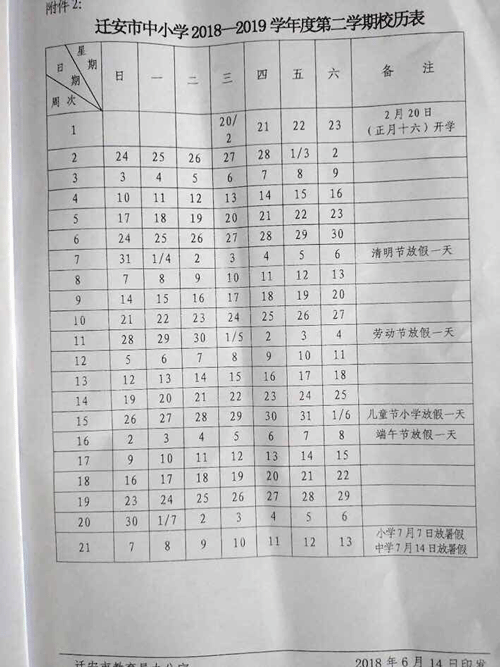 附件 2:
迁安市中小学 2018—2019 学年度第二学期校历表
星期 日期 周次 日 一 二 三 四 五 六 备 注
1 20/2 21 22 23 2 月 20 日（正月十六）开学
2 24 25 26 27 28 1/3 2
3 3 4 5 6 7 8 9
4 10 11 12 13 14 15 16
5 17 18 19 20 21 22 23
6 24 25 26 27 28 29 30
7 31 1/4 2 3 4 5 6 清明节放假一天
8 7 8 9 10 11 12 13
9 14 15 16 17 18 19 20
10 21 22 23 24 25 26 27
11 28 29 30 1/5 2 3 4 劳动节放假一天
12 5 6 7 8 9 10 11
13 12 13 14 15 16 17 18
14 19 20 21 22 23 24 25
15 26 27 28 29 30 31 1/6 儿童节小学放假一天
16 2 3 4 5 6 7 8 端午节放假一天
17 9 10 11 12 13 14 15
18 16 17 18 19 20 21 22
19 23 24 25 26 27 28 29
20 30 1/7 2 3 4 5 6
21 7 8 9 10 11 12 13 小学 7 月 7 日放暑假 中学 7 月 14 日放暑假
迁安市教育局办公室 2018 年 6 月 14 日印发